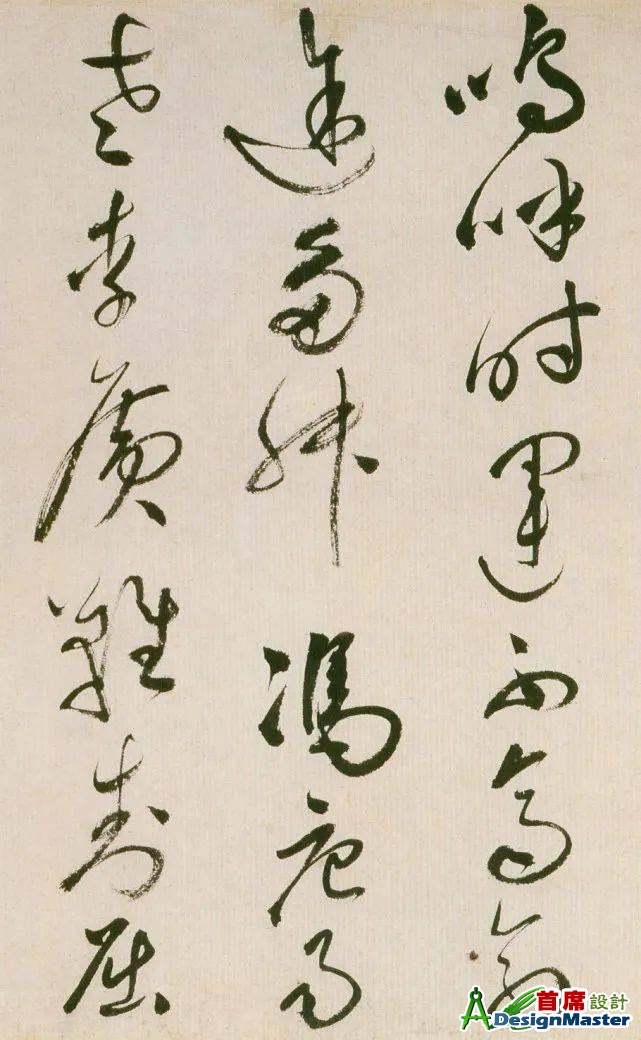 嗚呼時運不齊命
途多舛馮唐易
老李廣難封屈
首席設計
ADesignMaster